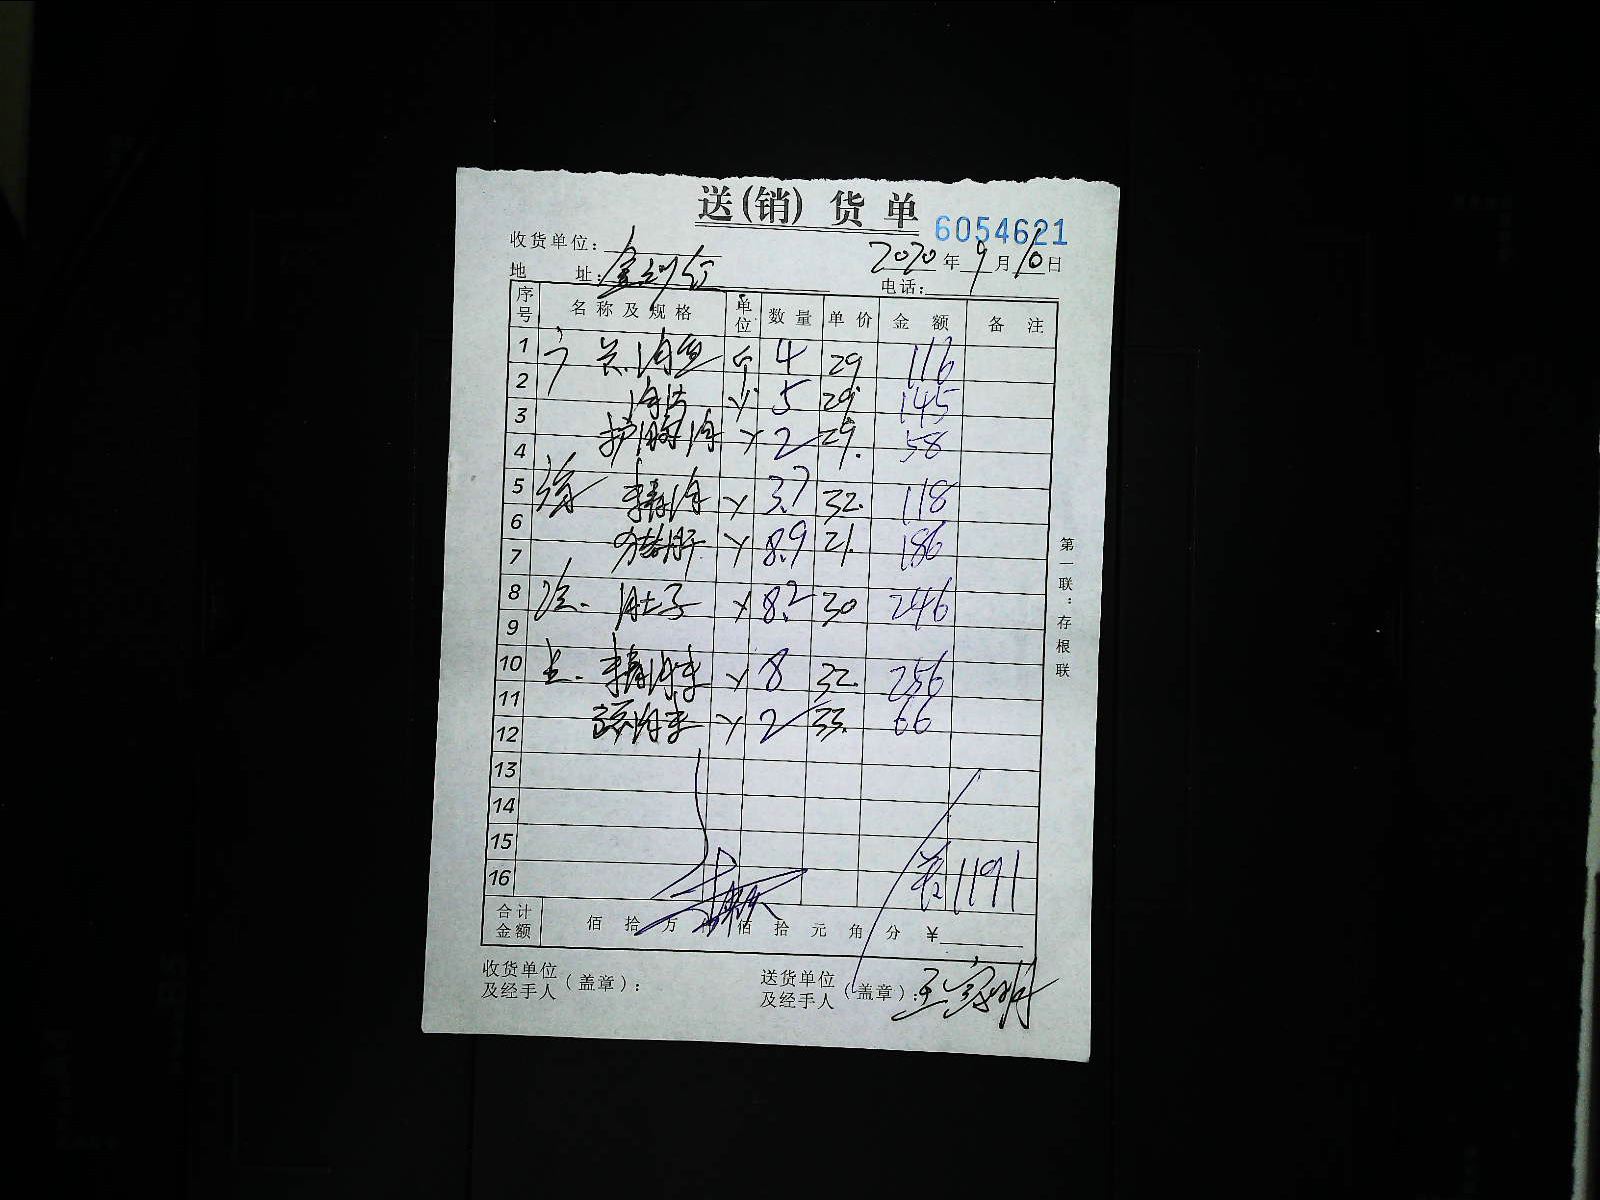 送(销)货单
6054621
收货单位:
2020年9月10日
地 址:
电话:
序号 名称及规格 单位 数量 单价 金额 备注
1 4 29 116
2 5 29 145
3 护心肉 2 29 58
4
5 精肉 3.7 32 118
6 猪肝 8.9 21 186
7
8 肚子 8.2 30 246
9
10 精肉 8 32 256
11 2 33 66
12
13
14
15
16 1191
合计金额 佰 拾 万 仟 佰 拾 元 角 分 ¥
收货单位及经手人(盖章):
送货单位及经手人(盖章):王家明
第一联:存根联